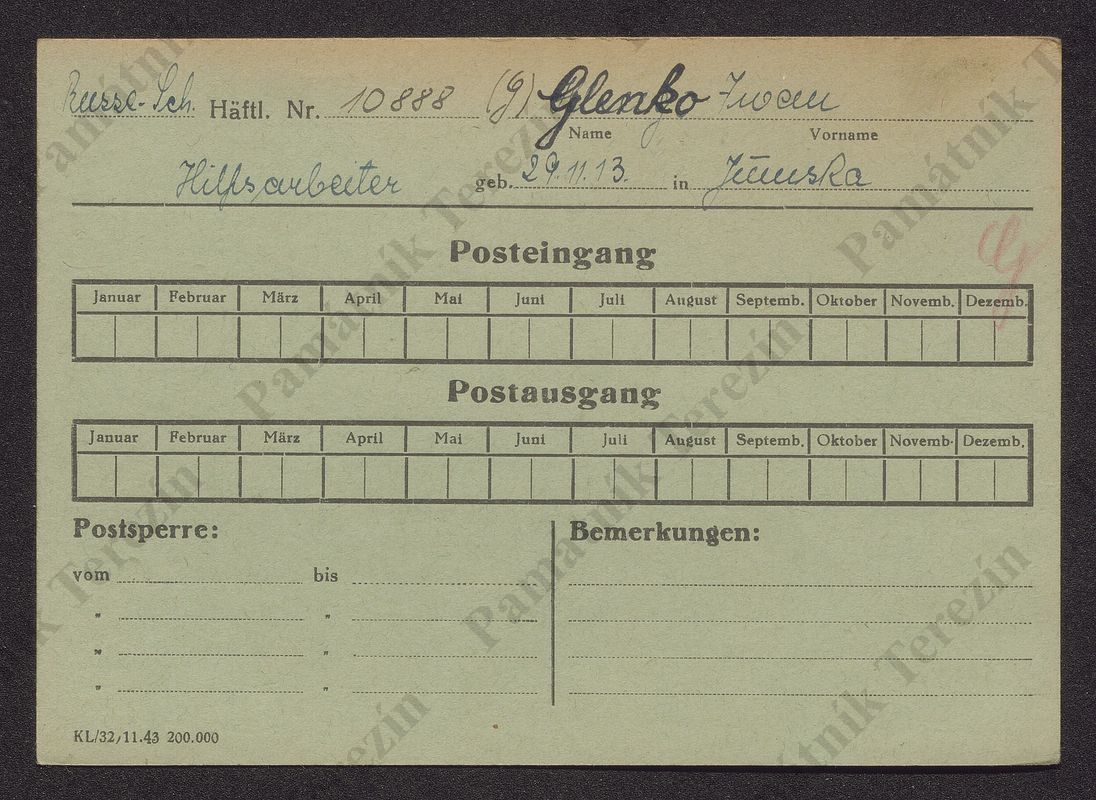 Russe-Sch. Häftl. Nr. 10888 (g) Glenko Iwan
Name Vorname
Hilfsarbeiter geb. 29.11.13. in
Posteingang
Januar Februar März April Mai Juni Juli August Septemb. Oktober Novemb. Dezemb.
Postausgang
Januar Februar März April Mai Juni Juli August Septemb. Oktober Novemb. Dezemb.
Postsperre: Bemerkungen:
vom bis
" "
" "
" "
KL/32/11.43 200.000
Památník Terezín